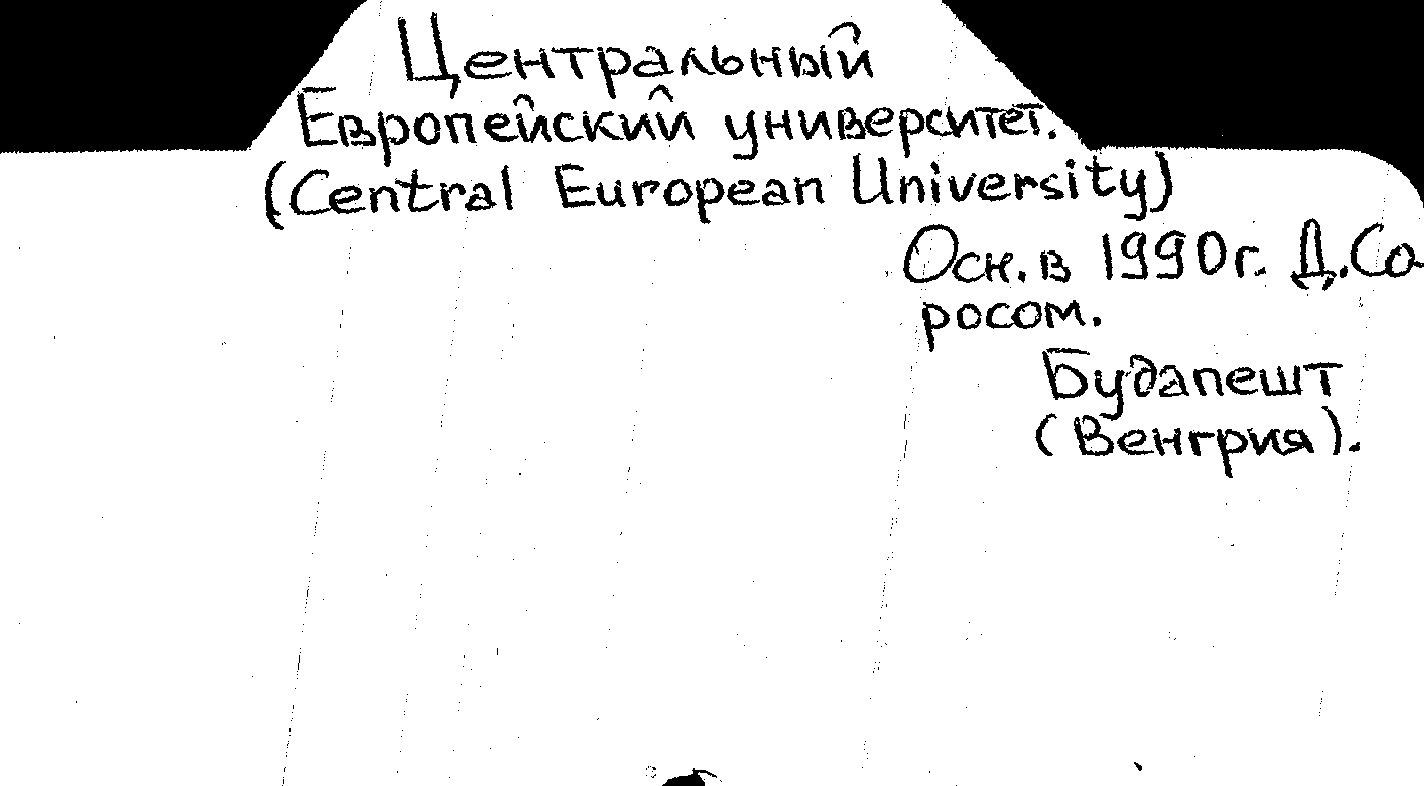 Центральный
Европейский университет.
(Central European University)
Осн. в 1990г. Д.Со
росом.
Будапешт
(Венгрия).